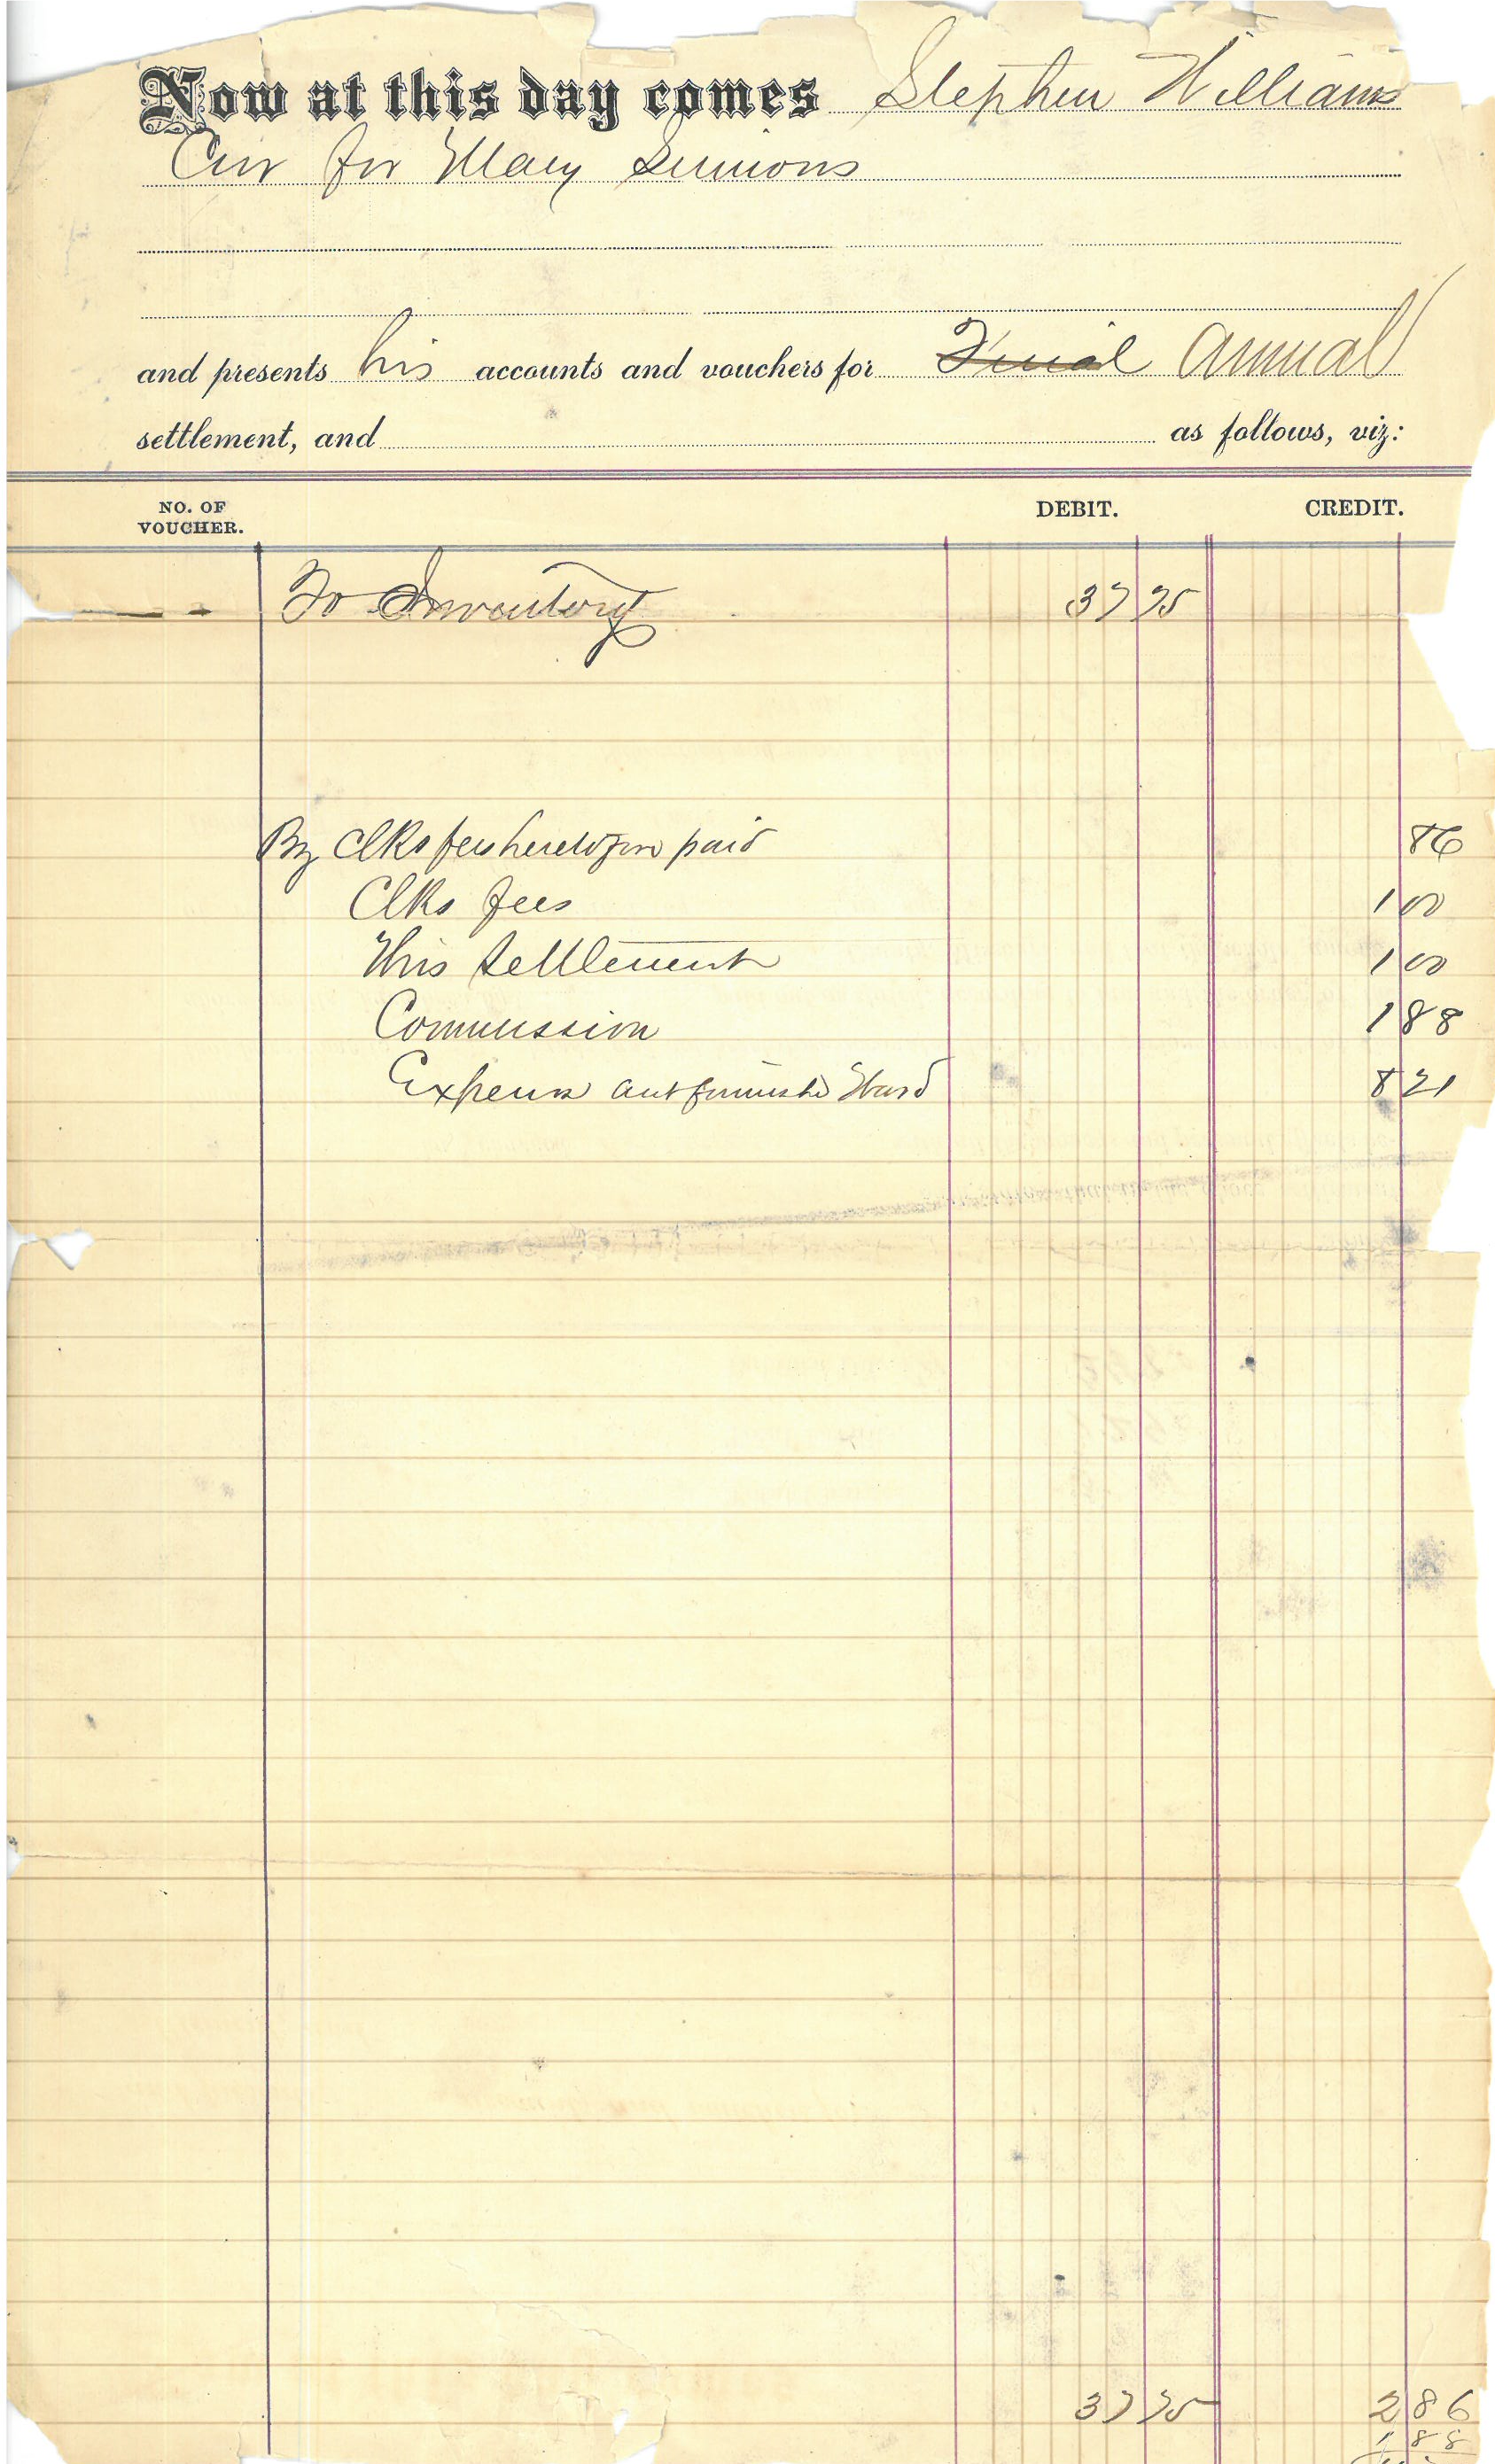 Now at this day comes Stephen Williams
Cur for Mary Simions
and presents his accounts and vouchers for Final Annual
settlement, and as follows, viz:
NO. OF VOUCHER. DEBIT. CREDIT.
To Inventory 37 75
By Clks fees heretofore paid 86
Clks fees 1 00
This Settlement 1 00
Commission 1 88
Expense furnishd Ward 8 21
37 75 2 86
1 88